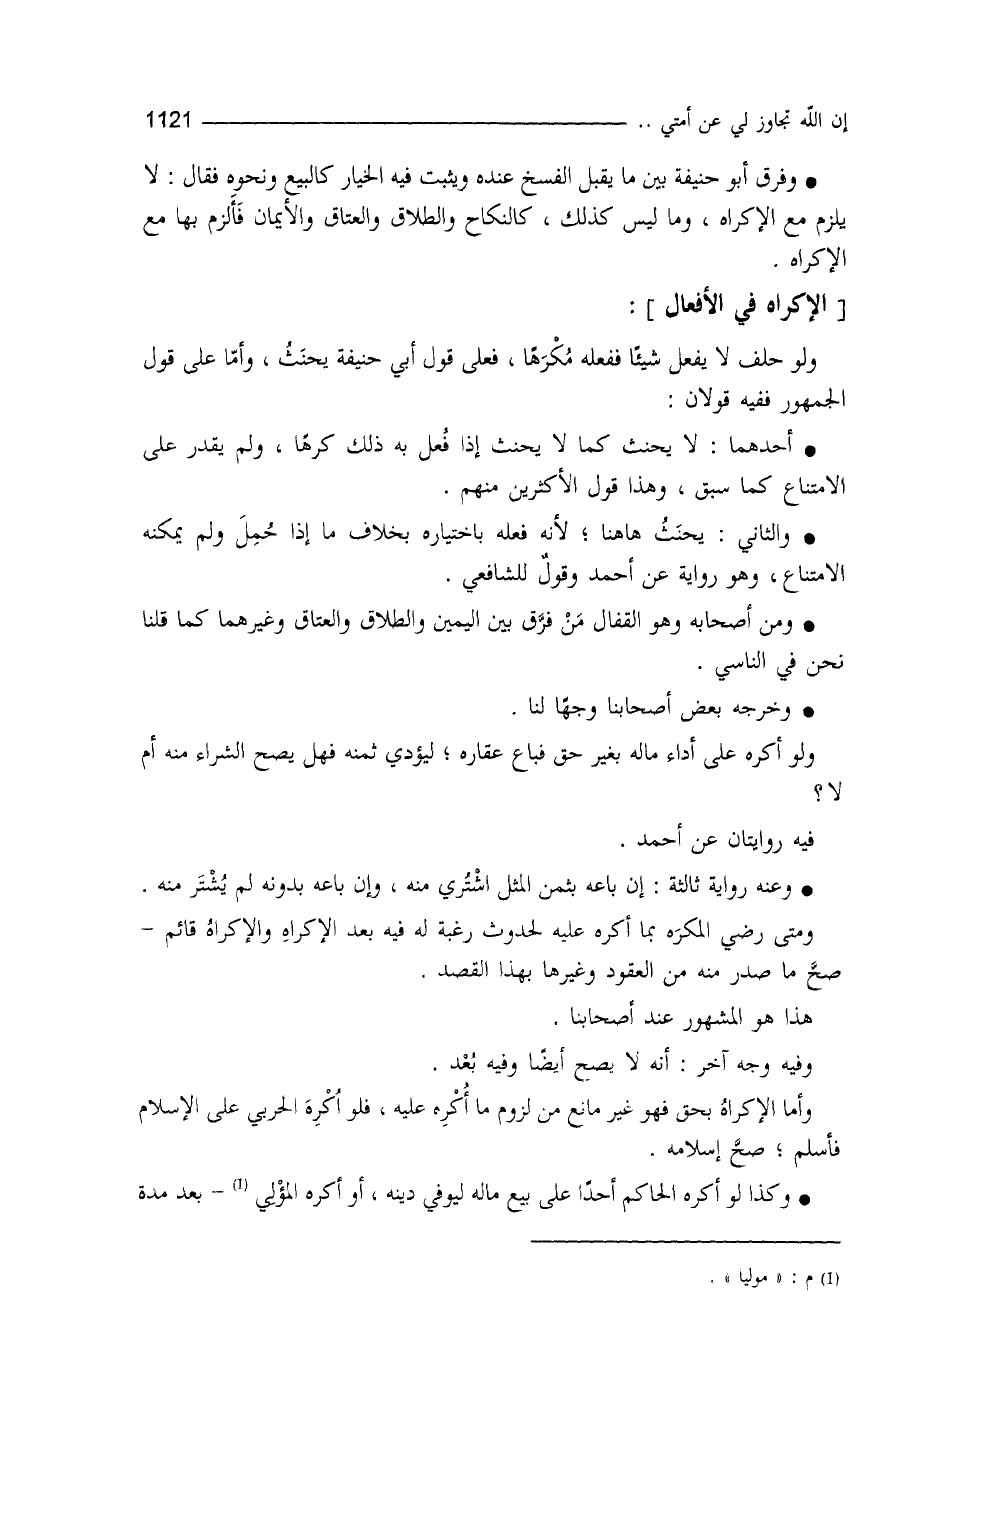 إن اللّه تجاوز لي عن أمتي .. 1121
● وفرق أبو حنيفة بين ما يقبل الفسخ عنده ويثبت فيه الخيار كالبيع ونحوه فقال : لا
يلزم مع الإكراه ، وما ليس كذلك ، كالنكاح والطلاق والعتاق والأيمان فَأَلزم بها مع
الإكراه .
[ الإكراه في الأفعال ] :
ولو حلف لا يفعل شيئًا ففعله مُكْرَهًا ، فعلى قول أبي حنيفة يحنَثُ ، وأمّا على قول
الجمهور ففيه قولان :
● أحدهما : لا يحنث كما لا يحنث إذا فُعل به ذلك كرهًا ، ولم يقدر على
الامتناع كما سبق ، وهذا قول الأكثرين منهم .
● والثاني : يحنَثُ هاهنا ؛ لأنه فعله باختياره بخلاف ما إذا حُمِلَ ولم يمكنه
الامتناع ، وهو رواية عن أحمد وقولٌ للشافعي .
● ومن أصحابه وهو القفال مَنْ فرَّق بين اليمين والطلاق والعتاق وغيرهما كما قلنا
نحن في الناسي .
● وخرجه بعض أصحابنا وجهًا لنا .
ولو أكره على أداء ماله بغير حق فباع عقاره ؛ ليؤدي ثمنه فهل يصح الشراء منه أم
لا ؟
فيه روايتان عن أحمد .
● وعنه رواية ثالثة : إن باعه بثمن المثل اشْتُري منه ، وإن باعه بدونه لم يُشْتَر منه .
ومتى رضي المكرَه بما أكره عليه لحدوث رغبة له فيه بعد الإكراهِ والإكراهُ قائم –
صحَّ ما صدر منه من العقود وغيرها بهذا القصد .
هذا هو المشهور عند أصحابنا .
وفيه وجه آخر : أنه لا يصح أيضًا وفيه بُعْد .
وأما الإكراهُ بحق فهو غير مانع من لزوم ما أُكْرِه عليه ، فلو أُكْرِهَ الحربي على الإسلام
فأسلم ؛ صحَّ إسلامه .
● وكذا لو أكره الحاكم أحدًا على بيع ماله ليوفي دينه ، أو أكره المؤْلِي (1) – بعد مدة
(1) م : « موليا » .